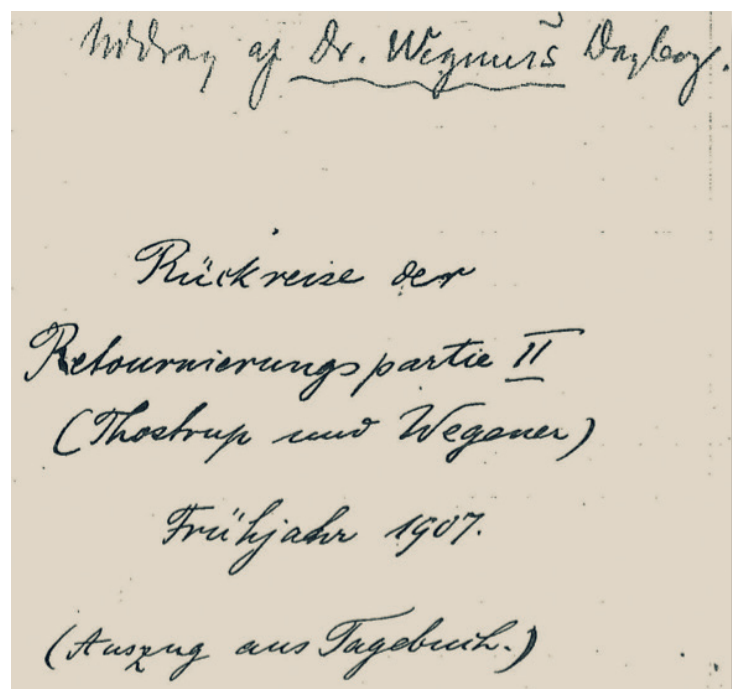 Uddrag af Dr. Wegners Dagbog.
Rückreise der
Retournierungspartie II
(Thostrup und Wegener)
Frühjahr 1907.
(Auszug aus Tagebuch.)